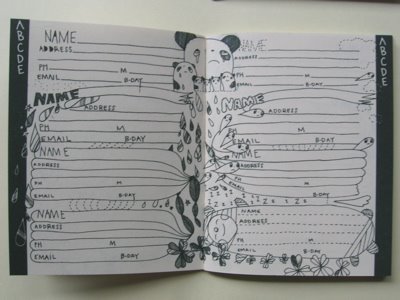 A
B
C
D
E
NAME
ADDRESS
PH M
EMAIL B-DAY
NAME
ADDRESS
PH M
EMAIL B-DAY
NAME
ADDRESS
PH M
EMAIL B-DAY
NAME
ADDRESS
PH M
EMAIL B-DAY
NAME
ADDRESS
PH M
EMAIL B-DAY
NAME
ADDRESS
PH M
EMAIL B-DAY
NAME
ADDRESS
PH M
EMAIL B-DAY
NAME
ADDRESS
PH M
EMAIL B-DAY
A
B
C
D
E